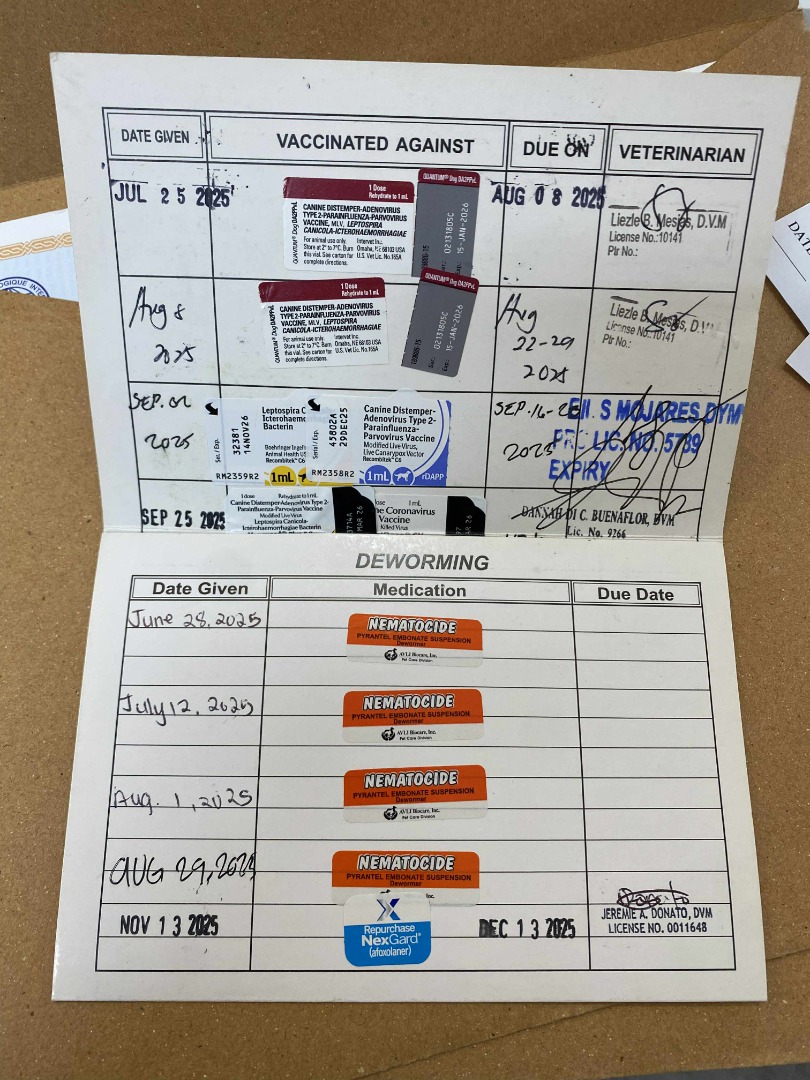 DATE GIVEN
VACCINATED AGAINST
DUE ON
VETERINARIAN
JUL 25 2025
1 Dose
Rehydrate to 1 mL
CANINE DISTEMPER-ADENOVIRUS
TYPE 2-PARAINFLUENZA-PARVOVIRUS
VACCINE, MLV, LEPTOSPIRA
CANICOLA-ICTEROHAEMORRHAGIAE
For animal use only.
Store at 2° to 7°C. Burn
this vial. See carton for
complete directions.
Intervet Inc.
Omaha, NE 68103 USA
U.S. Vet Lic. No. 165A
QUANTUM® Dog DA2PPvL
QUANTUM® Dog DA2PPvL
02131805C
15-JAN-2026
AUG 08 2025
Liezle B. Mesias, D.V.M
License No.:10141
Ptr No.:
Aug 8
2025
1 Dose
Rehydrate to 1 mL
CANINE DISTEMPER-ADENOVIRUS
TYPE 2-PARAINFLUENZA-PARVOVIRUS
VACCINE, MLV, LEPTOSPIRA
CANICOLA-ICTEROHAEMORRHAGIAE
For animal use only.
Store at 2° to 7°C. Burn
this vial. See carton for
complete directions.
Intervet Inc.
Omaha, NE 68103 USA
U.S. Vet Lic. No. 165A
QUANTUM® Dog DA2PPvL
QUANTUM® Dog DA2PPvL
Ser.: 02131805C
Exp.: 15-JAN-2026
Aug
22-29
2025
Liezle B. Mesias, D.V.M
License No.:10141
Ptr No.:
SEP. 02
2025
Ser. / Exp.
32381
14NOV26
Leptospira C
Icterohaem
Bacterin
Boehringer Ingelh
Animal Health US
Recombitek® C6
RM2359R2
1mL
Serial / Exp.
45802A
29DEC25
Canine Distemper-
Adenovirus Type 2-
Parainfluenza-
Parvovirus Vaccine
Modified Live Virus,
Live Canarypox Vector
Recombitek® C6
RM2358R2
1mL
rDAPP
SEP. 16-
2025
S MOJARES, DVM
PRC LIC. NO. 5789
EXPIRY
SEP 25 2025
1 dose
Rehydrate to 1 mL
Canine Distemper-Adenovirus Type 2-
Parainfluenza-Parvovirus Vaccine
Modified Live Virus
Leptospira Canicola-
Icterohaemorrhagiae Bacterin
MAR 26
dose
1 mL
ne Coronavirus
Vaccine
Killed Virus
MAR 26
DANNAH DI C. BUENAFLOR, DVM
Lic. No. 9266
DEWORMING
Date Given
Medication
Due Date
June 28, 2025
NEMATOCIDE
PYRANTEL EMBONATE SUSPENSION
Dewormer
AVLI Biocare, Inc.
Pet Care Division
July 12, 2025
NEMATOCIDE
PYRANTEL EMBONATE SUSPENSION
Dewormer
AVLI Biocare, Inc.
Pet Care Division
Aug. 1, 2025
NEMATOCIDE
PYRANTEL EMBONATE SUSPENSION
Dewormer
AVLI Biocare, Inc.
Pet Care Division
AUG 29, 2025
NEMATOCIDE
PYRANTEL EMBONATE SUSPENSION
Dewormer
Inc.
NOV 13 2025
Repurchase
NexGard®
(afoxolaner)
DEC 13 2025
JEREMIE A. DONATO, DVM
LICENSE NO. 0011648